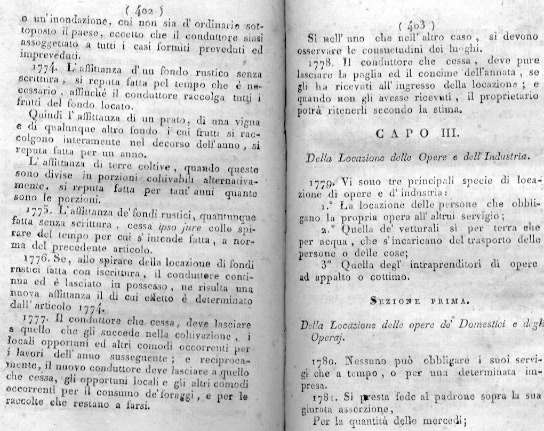 ( 402 )
o un'inondazione, cui non sia d'ordinario sot-
toposto il paese, eccetto che il conduttore siasi
assoggettato a tutti i casi fortuiti preveduti ed
impreveduti.
1774. L'affittanza d'un fondo rustico senza
scrittura, si reputa fatta pel tempo che è ne-
cessario, affinchè il conduttore raccolga tutti i
frutti del fondo locato.
Quindi l'affittanza di un prato, di una vigna
e di qualunque altro fondo i cui frutti si rac-
colgono interamente nel decorso dell'anno, si
reputa fatta per un anno.
L'affittanza di terre coltive, quando queste
sono divise in porzioni coltivabili alternativa-
mente, si reputa fatta per tant'anni quante
sono le porzioni.
1775. L'affittanza de' fondi rustici, quantunque
fatta senza scrittura, cessa ipso jure collo spi-
rare del tempo per cui s'intende fatta, a nor-
ma del precedente articolo.
1776. Se, allo spirare della locazione di fondi
rustici fatta con iscrittura, il conduttore conti-
nua ed è lasciato in possesso, ne risulta una
nuova affittanza il di cui effetto è determinato
dall'articolo 1774.
1777. Il conduttore che cessa, deve lasciare
a quello che gli succede nella coltivazione, i
locali opportuni ed altri comodi occorrenti per
i lavori dell'anno susseguente; e reciproca-
mente, il nuovo conduttore deve lasciare a quello
che cessa, gli opportuni locali e gli altri comodi
occorrenti per il consumo de' foraggi, e per le
raccolte che restano a farsi.
( 403 )
Sì nell'uno che nell'altro caso, si devono
osservare le consuetudini dei luoghi.
1778. Il conduttore che cessa, deve pure
lasciare la paglia ed il concime dell'annata, se
gli ha ricevuti all'ingresso della locazione; e
quando non gli avesse ricevuti, il proprietario
potrà ritenerli secondo la stima.
CAPO III.
Della Locazione delle Opere e dell'Industria.
1779. Vi sono tre principali specie di loca-
zione di opere e d'industria:
1.° La locazione delle persone che obbli-
gano la propria opera all'altrui servigio;
2.° Quella de' vetturali sì per terra che
per acqua, che s'incaricano del trasporto delle
persone o delle cose;
3° Quella degl'intraprenditori di opere
ad appalto o cottimo.
SEZIONE PRIMA.
Della Locazione delle opere de' Domestici e degli
Operaj.
1780. Nessuno può obbligare i suoi servi-
gi che a tempo, o per una determinata im-
presa.
1781. Si presta fede al padrone sopra la sua
giurata asserzione,
Per la quantità delle mercedi;